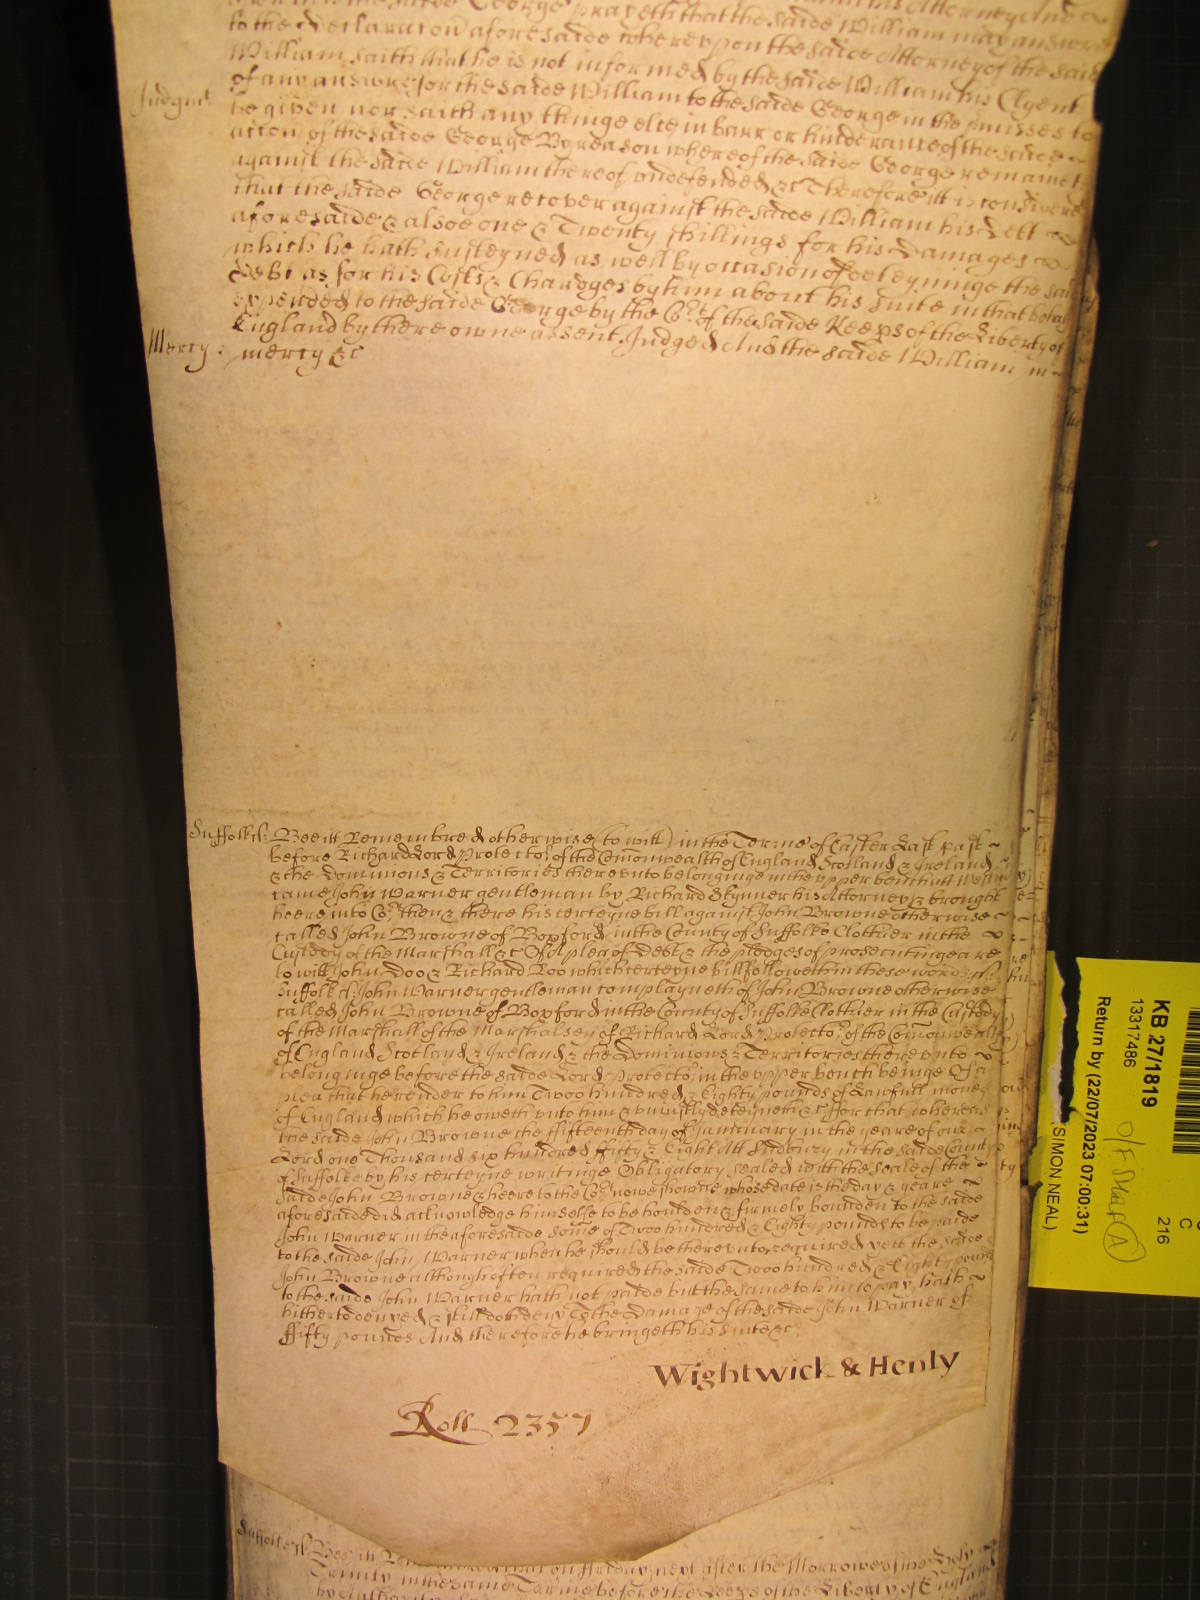 the saide George prayeth that the saide William may answere
to the declaracon aforesaide whereupon the saide Attorney of the said
William saith that he is not informed by the saide William his Clyent
Judgmt of any answere for the saide William to the saide George in the pmisses to
be given nor saith any thinge else in barr or hinderance of the saide
accon of the saide George By reason whereof the saide George remaineth
against the saide William thereof undefended &c Therefore itt is considered
that the saide George recover against the saide William his Debt
aforesaide & alsoe one & Twenty shillings for his Damages
which he hath susteyned as well by occasion of deteyninge the said
Debt as for his Costs & Chardges by him about his suite in that behalf
expended to the saide George by the Cot of the saide Keeps of the Liberty of
England by there owne assent Judged And the saide William in
Mercy : mercy &c
Suffolk s: Bee itt Remembred otherwise (to witt) in the Terme of Easter Last past
before Richard Lord Protector of the Comonwealth of England Scotland & Ireland
& the Dominions & Territories thereunto belonginge in the upper bench att Westmr
came John Warner gentleman by Richard Skynner his Attorney & brought
heere into Cot then & there his certeyne bill against John Browne otherwise
called John Browne of Boxford in the County of Suffolke Clothier in the
Custody of the Marshall &c Of a plea of Debt & the pledges of prosecutinge are
to witt John Doo & Richard Roo which certeyne bill followeth in these words s:
Suffolk s: John Warner gentleman complayneth of John Browne otherwise
called John Browne of Boxford in the County of Suffolke Clothier in the Custody
of the Marshall of the Marshalsey of Richard Lord Protector of the Comonwealth
of England Scotland & Ireland & the Dominions & Territories thereunto
belonginge before the saide Lord Protector in the upper bench beinge Of a
plea that he render to him Twoo hundred & Eighty pounds of Lawfull money
of England which he oweth unto him & uniustly deteyneth &c ffor that whereas
the saide John Browne the ffifteenth day of January in the yeare of our
Lord one Thousand six hundred ffifty & Eight Att Sudbury in the saide County
of Suffolke by his certeyne writinge Obligatory sealed with the seale of the
saide John Browne & heere to the Cot nowe showne whose date is the day & yeare
aforesaide did acknowledge himselfe to be houlden & firmely bounden to the saide
John Warner in the aforesaide some of Twoo hundred & Eighty pounds to be paide
to the saide John Warner when he should be thereunto required yett the saide
John Browne although often required the saide Twoo hundred & Eighty pounds
to the saide John Warner hath not paide but the same to him to pay hath
hitherto denyed & still doth deny To the Damage of the saide John Warner of
ffifty pounds And therefore he bringeth his suite &c
Wightwick & Henly
Roll 2357
Suffolk s: Bee itt that on ffriday next after the Morrowe of the Holy
Trinity in the same Terme before the Keeps of the Liberty of England
by Authority
KB 27/1819
13317486
Return by (22/07/2023 07:00:31)
SIMON NEAL)
C
216